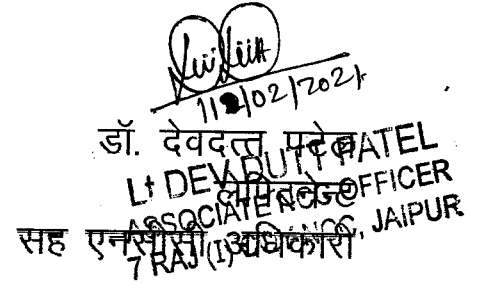 11/02/2021
डॉ. देवदत्त पटेल
Lt DEV DUTT PATEL
लेफ्टिनेन्ट
ASSOCIATE NCC OFFICER
सह एनसीसी अधिकारी
7 RAJ (I) JAIPUR